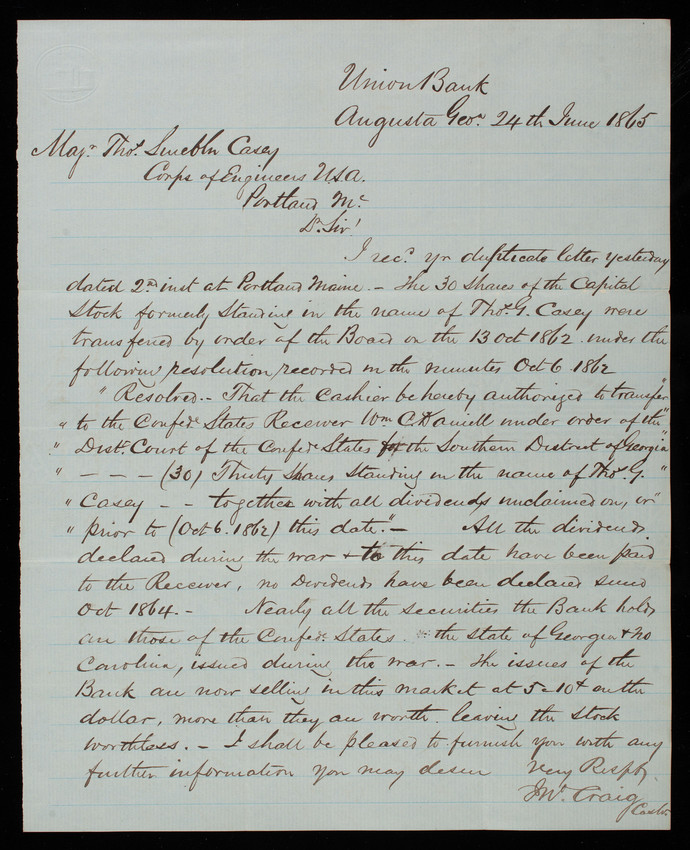 Union Bank
Augusta Geoa. 24th June 1865
Majr. Thos. Casey
Corps of Engineers USA.
Portland Me.
Dr. Sir!
I recd. yr duplicate letter yesterday
dated 2nd inst at Portland Maine. - The 30 Shares of the Capital
Stock formerly standing in the name of Thos. G. Casey were
transferred by order of the Board on the 13 Oct 1862 under the
following resolution recorded in the minutes Oct 6 1862
" Resolved.- That the Cashier be hereby authorized to transfer "
" to the Confede. States Receiver Wm. C. Daniell under order of the "
" Distt. Court of the Confede States for the Southern District of Georgia
" - - - (30) Thirty Shares standing in the name of Thos. G. "
" Casey - - together with all dividends unclaimed on, or "
" prior to (Oct 6. 1862) this date." - All the dividends
declared during the war & to this date have been paid
to the Receiver, no Dividends have been declared since
Oct 1864. - Nearly all the securities the Bank holds
are those of the Confede. States. the State of Georgia & No
Carolina, issued during the war. - The issues of the
Bank are now selling in this market at 5 a 10 on the
dollar, more than they are worth. leaving the stock
worthless. - I shall be pleased to furnish you with any
further information you may desire Very Respfy.
Craig
Cashr.